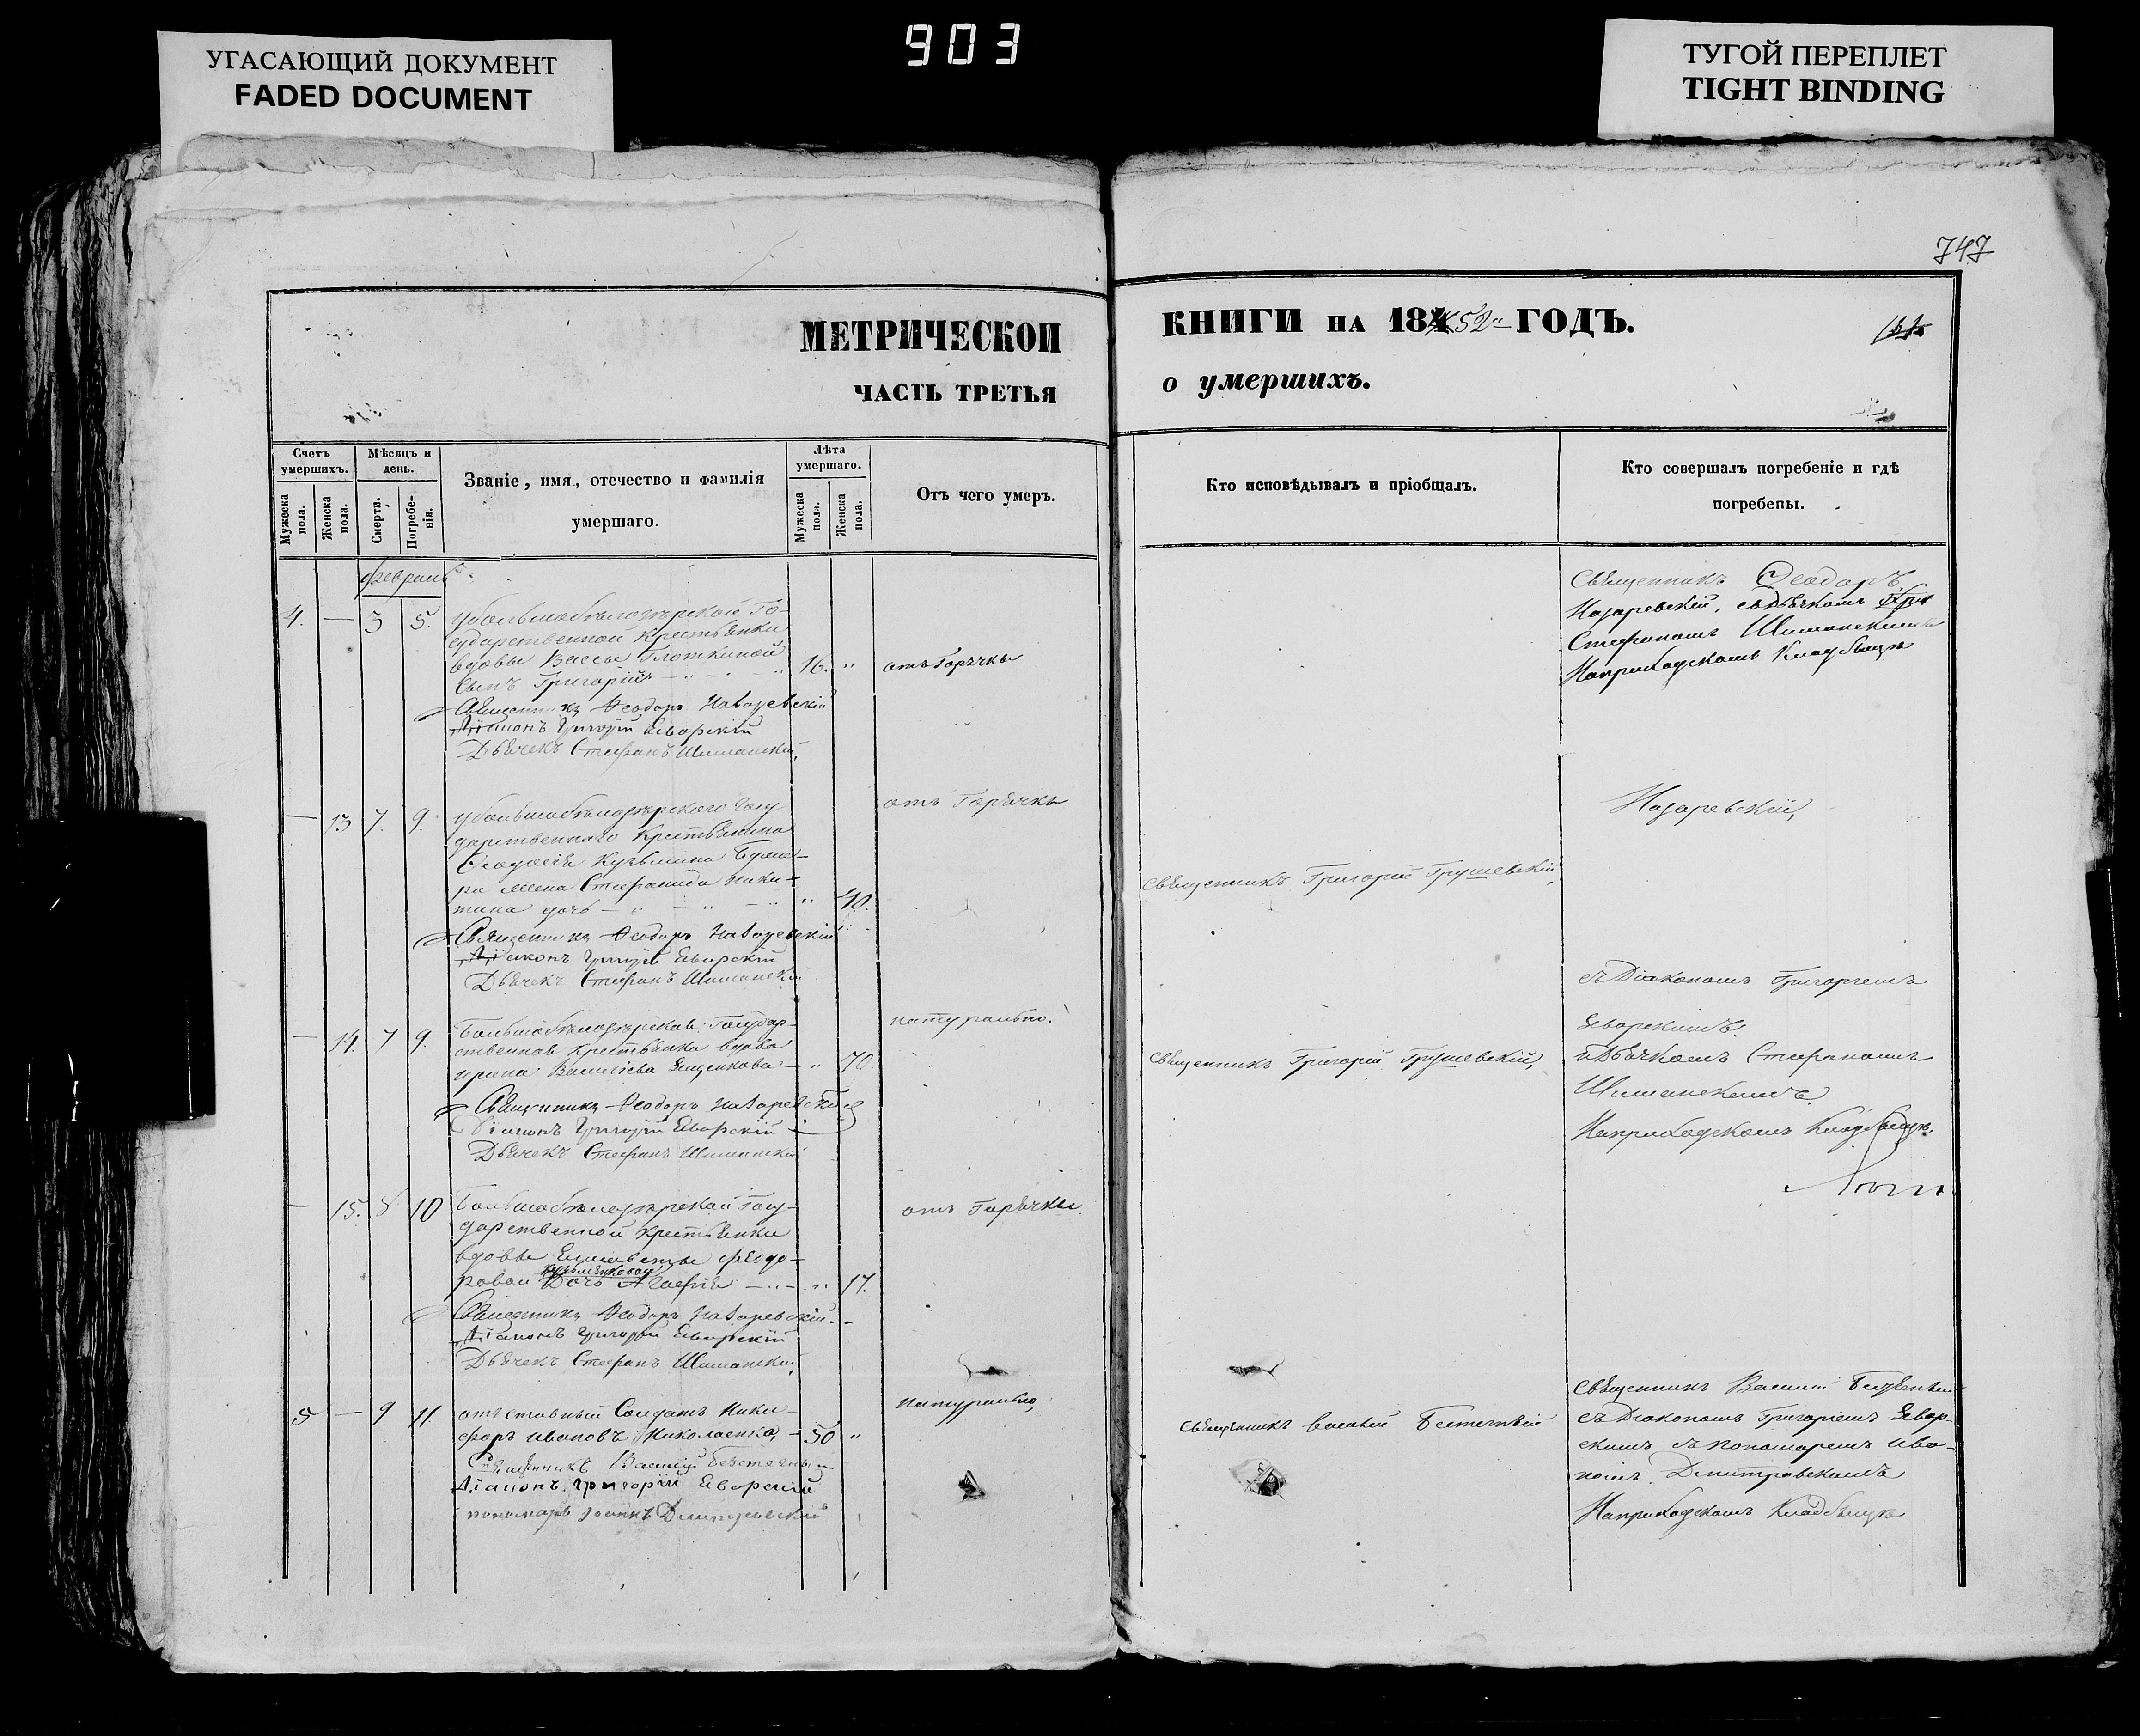 УГАСАЮЩИЙ ДОКУМЕНТ
FADED DOCUMENT
903
ТУГОЙ ПЕРЕПЛЕТ
TIGHT BINDING
747
МЕТРИЧЕСКОЙ
ЧАСТЬ ТРЕТЬЯ
КНИГИ НА 1852 ГОДЪ.
о умершихъ.
Счетъ умершихъ.
Мужеска пола.
Женска пола.
Мѣсяцъ и день.
Смерти.
Погребенія.
Званіе, имя, отечество и фамилія
умершаго.
Лѣта умершаго.
Мужеска пола.
Женска пола.
Отъ чего умеръ.
Кто исповѣдывалъ и пріобщалъ.
Кто совершалъ погребеніе и гдѣ
погребены.
4. — 3 5.
ударственной Крестьянки
вдовы Вассы Глоткиной
сынъ Григорій 16. "
отъ Горячки
Священникъ Ѳеодоръ Назаревскій
Діаконъ Григорій Яворскій
Дьячекъ Стефанъ Шиманскій
Священникъ Ѳеодоръ
Назаревскій, съ Дьячкомъ
Стефаномъ Шиманскимъ
На приходскомъ Кладбищѣ
— 13 7. 9.
дарственнаго Крестьянина
Ѳеодосія Кузьмина
жена Стефанида Ники-
тина дочь " 40.
отъ Горячки
Священникъ Григорій Грушевскій
Назаревскій,
Священникъ Ѳеодоръ Назаревскій
Діаконъ Григорій Яворскій
Дьячекъ Стефанъ Шиманскій
— 14. 7 9.
ственная Крестьянка вдова
Ирина Васильева Ященкова — " 70
натурально.
Священникъ Григорій Грушевскій,
съ Діакономъ Григоріемъ
Яворскимъ
и Дьячкомъ Стефаномъ
Шиманскимъ
На приходскомъ Кладбищѣ.
Священникъ Ѳеодоръ Назаревскій
Діаконъ Григорій Яворскій
Дьячекъ Стефанъ Шиманскій
— 15. 8 10
дарственной Крестьянки
вдовы Елисаветы Ѳеодо-
ровой Дочь Агафія — " 17.
отъ Горячки
Священникъ Ѳеодоръ Назаревскій
Діаконъ Григорій Яворскій
Дьячекъ Стефанъ Шиманскій,
5 — 9 11.
отставный Солдатъ Ники-
форъ Ивановъ Николаенко, — 50 "
натурально,
Священникъ Василій
Діаконъ Григорій Яворскій
пономарь Іоаннъ Дмитровскій
Священникъ Василій
Священникъ Василій
съ Діакономъ Григоріемъ Явор-
скимъ съ пономаремъ Ива-
номъ Дмитровскимъ
На приходскомъ Кладбищѣ